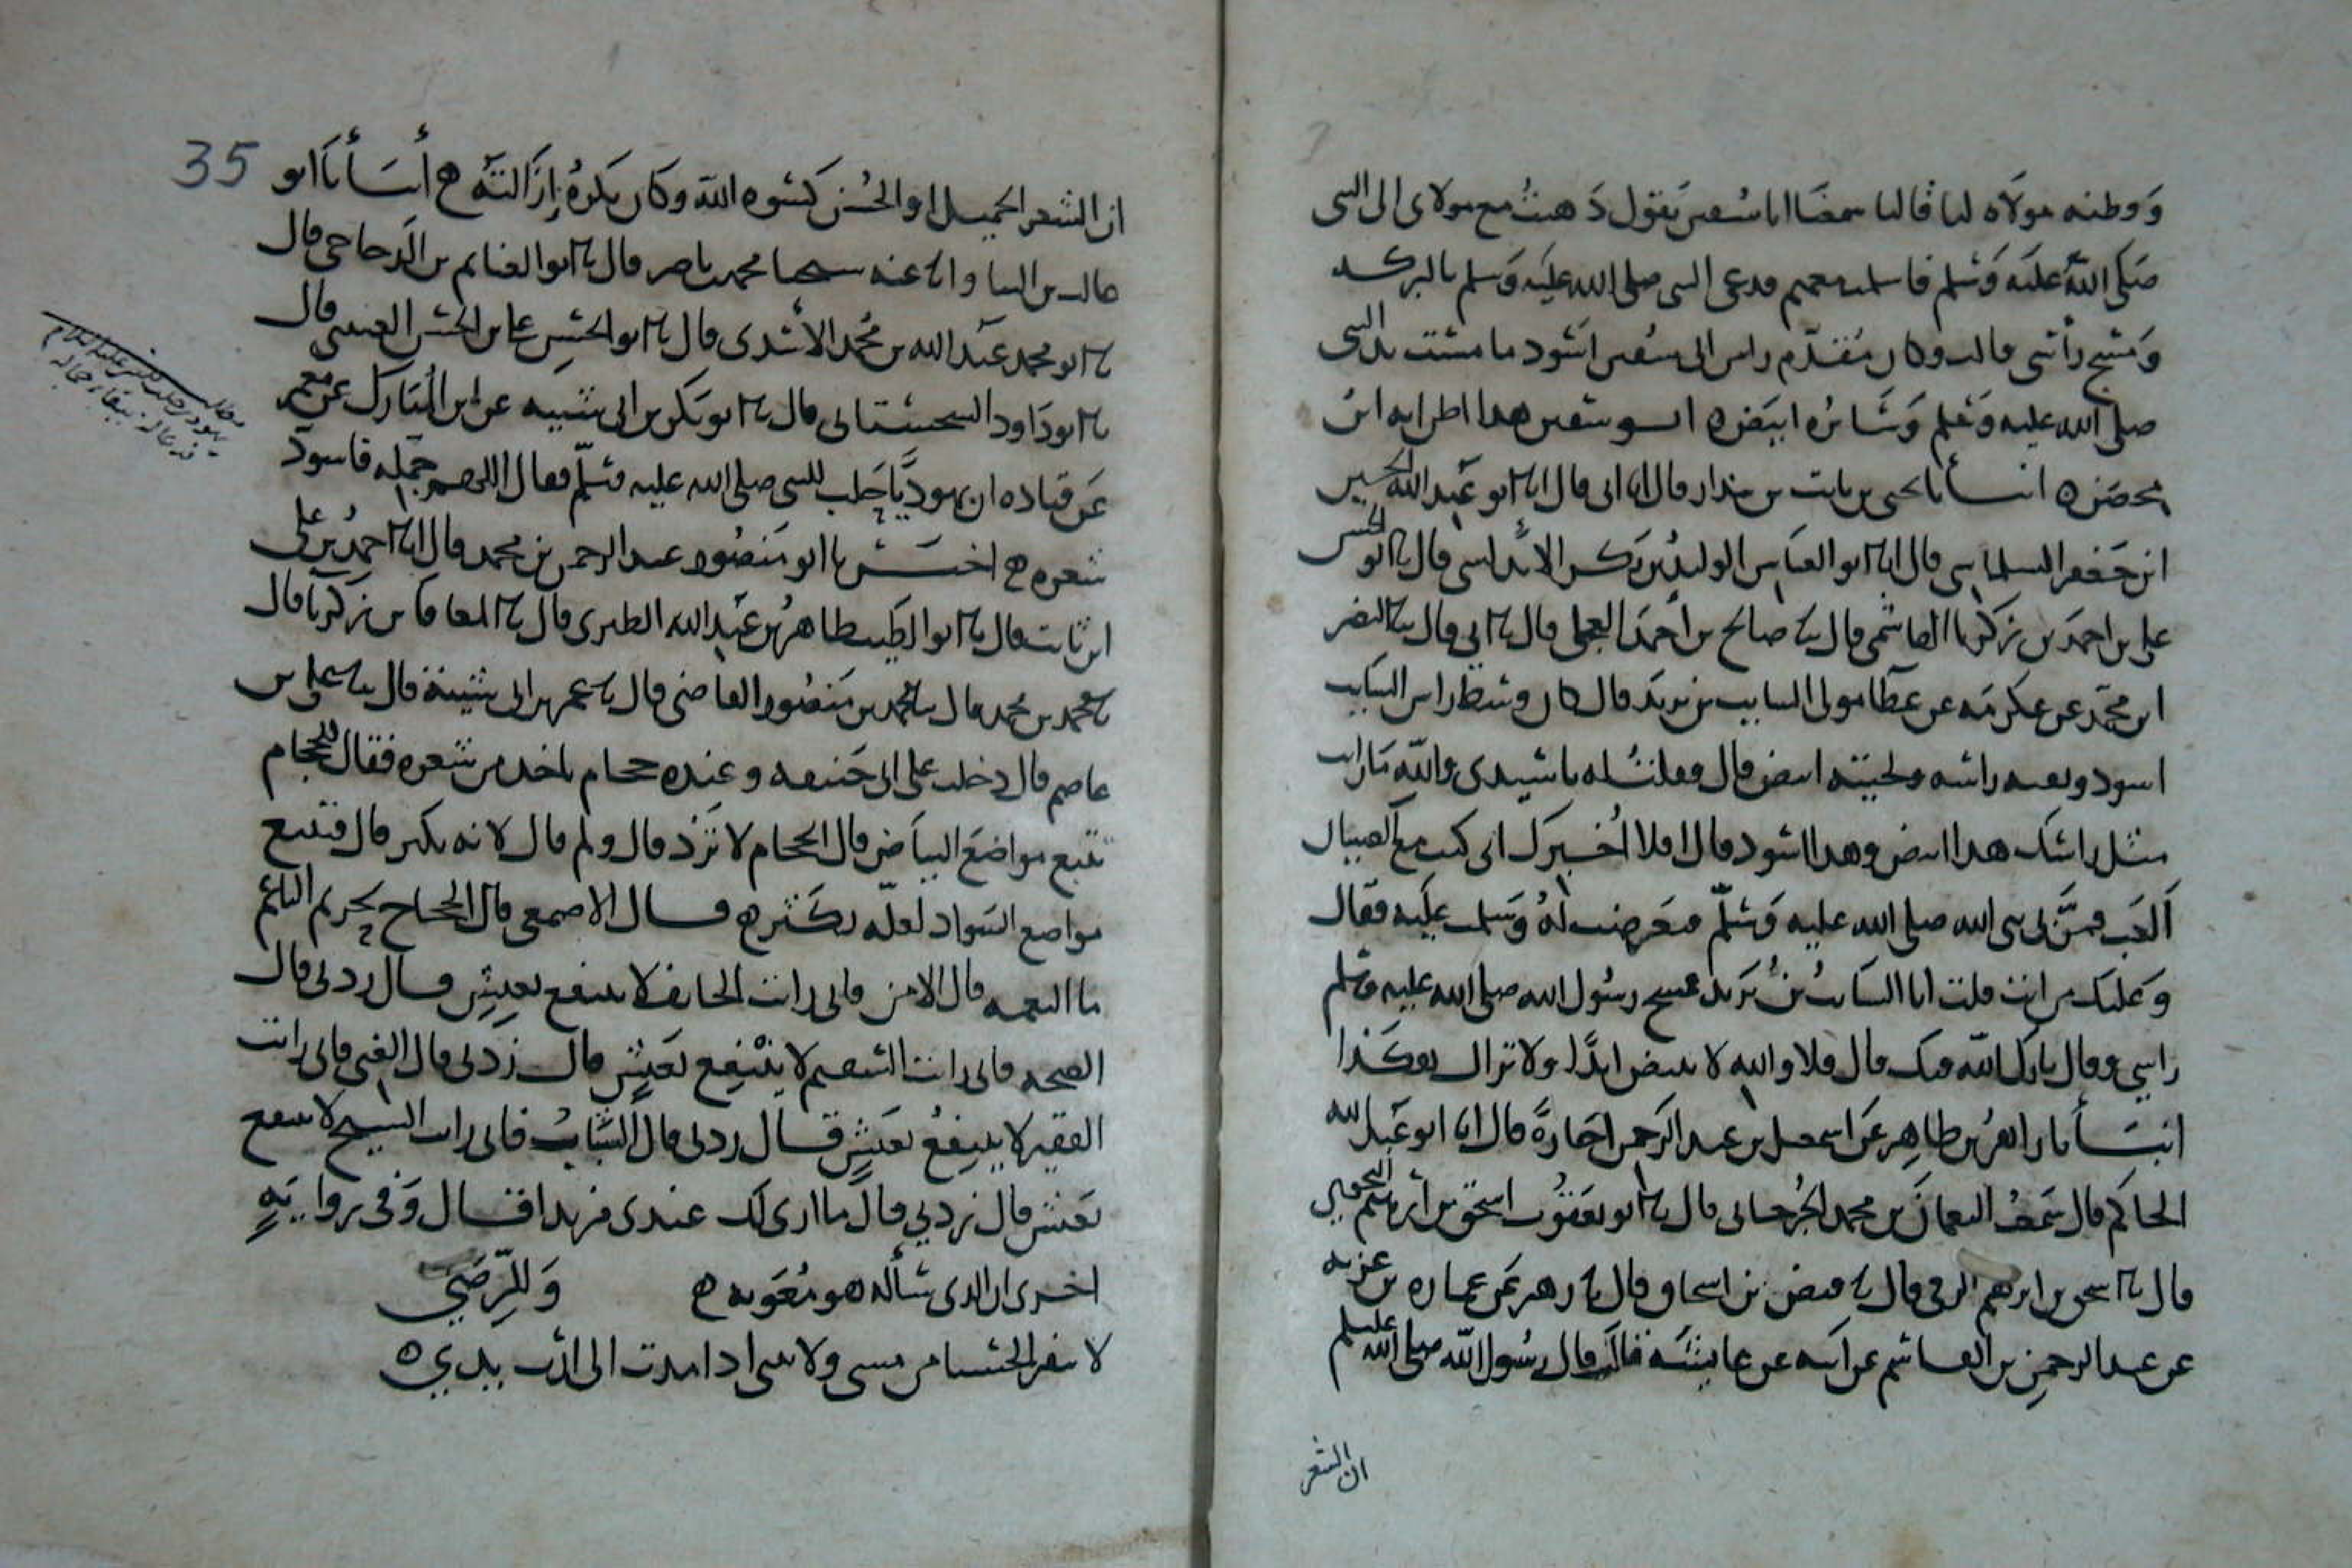 وقطبه مولاه لنا قالتا سمعنا ابا سفين يقول ذهبت مع مولاى الى النبى
صلى الله عليه وسلم فاسلمت معهم فدعى النبى صلى الله عليه وسلم بالبركه
ومسح رأسى قالت وكان مقدم راس ابى سفين اسود ما مست يد النبى
صلى الله عليه وسلم وسائره ابيض ه ابو سفين هذا اظن ابه ابن
محصن ه انبأنا يحيى بن ثابت بن بندار قال انا ابى قال انا ابو عبد الله الحسين
ابن جعفر السلماسى قال انا ابو العباس الوليد بن بكر الاندلسى قال نا ابو الحسن
على بن احمد بن زكريا الهاشمى قال نا صالح بن احمد العجلى قال نا ابى قال نا النضر
ابن محمد عن عكرمه عن عطا مولى السايب بن يزيد قال كان وسط راس السايب
اسود وبقيه راسه ولحيته ابيض قال فقلت له يا سيدى والله ما رايت
مثل راسك هذا ابيض وهذا اسود قال افلا أخبرك انى كنت مع الصبيان
ألعب فمر بى نبى الله صلى الله عليه وسلم فعرضت له وسلمت عليه فقال
وعليك من انت قلت انا السائب بن يزيد فمسح رسول الله صلى الله عليه وسلم
راسي وقال بارك الله فيك قال فلا والله لا يبيض ابدا ولا تزال هكذا
انبأنا زاهر بن طاهر عن اسمعيل بن عبد الرحمن اجازة قال انا ابو عبد الله
الحاكم قال سمعت النعمان بن محمد الجرجانى قال نا ابو يعقوب اسحق بن ابرهيم
قال نا اسحق بن ابرهيم قال نا فيض بن اسحاق قال نا زهير عن عماره بن غزيه
عن عبد الرحمن بن القاسم عن ابيه عن عايشه قالت قال رسول الله صلى الله عليه وسلم
ان الشعر
35
ان الشعر الجميل او الحسن كسوه الله وكان يكره إزالته ه أنبأنا ابو
غالب بن البنا وانا عنه محمد بن ناصر قال نا ابو الغنايم بن الدجاجى قال
نا ابو محمد عبد الله بن محمد الاسدى قال نا ابو الحسن على بن الحسن العبسى قال
نا ابو داود السجستانى قال نا ابو بكر بن ابى شيبه عن ابن المبارك عن معمر
عن قتاده ان يهوديا حلب للنبى صلى الله عليه وسلم فقال اللهم جمله فاسود
شعره ه اخبرنا ابو منصور عبد الرحمن بن محمد قال انا احمد بن على
ابن ثابت قال نا ابو الطيب طاهر بن عبد الله الطبرى قال نا المعافا بن زكريا قال
نا محمد بن محمد قال نا محمد بن منصور القاضى قال نا عمر بن ابى شيبة قال نا على بن
عاصم قال دخلت على ابى حنيفه وعنده حجام ياخذ من شعره فقال للحجام
تتبع مواضع البياض قال الحجام لا تزد قال ولم قال لانه يكثر قال فتتبع
مواضع السواد لعله يكثر ه قال الاصمعى قال الحجاج لخريم الناعم
ما النعمه قال الامن فانى رايت الخايف لا ينتفع بعيش قال زدنى قال
الصحه فانى رايت السقيم لا ينتفع بعيش قال زدنى قال الغنى فانى رايت
الفقير لا ينتفع بعيش قال زدنى قال الشباب فانى رايت الشيخ لا ينتفع
بعيش قال زدني قال ما ارى لك عندى مزيدا قال وفى رواية
اخرى ان الذى سأله هو معويه ه وللرضي